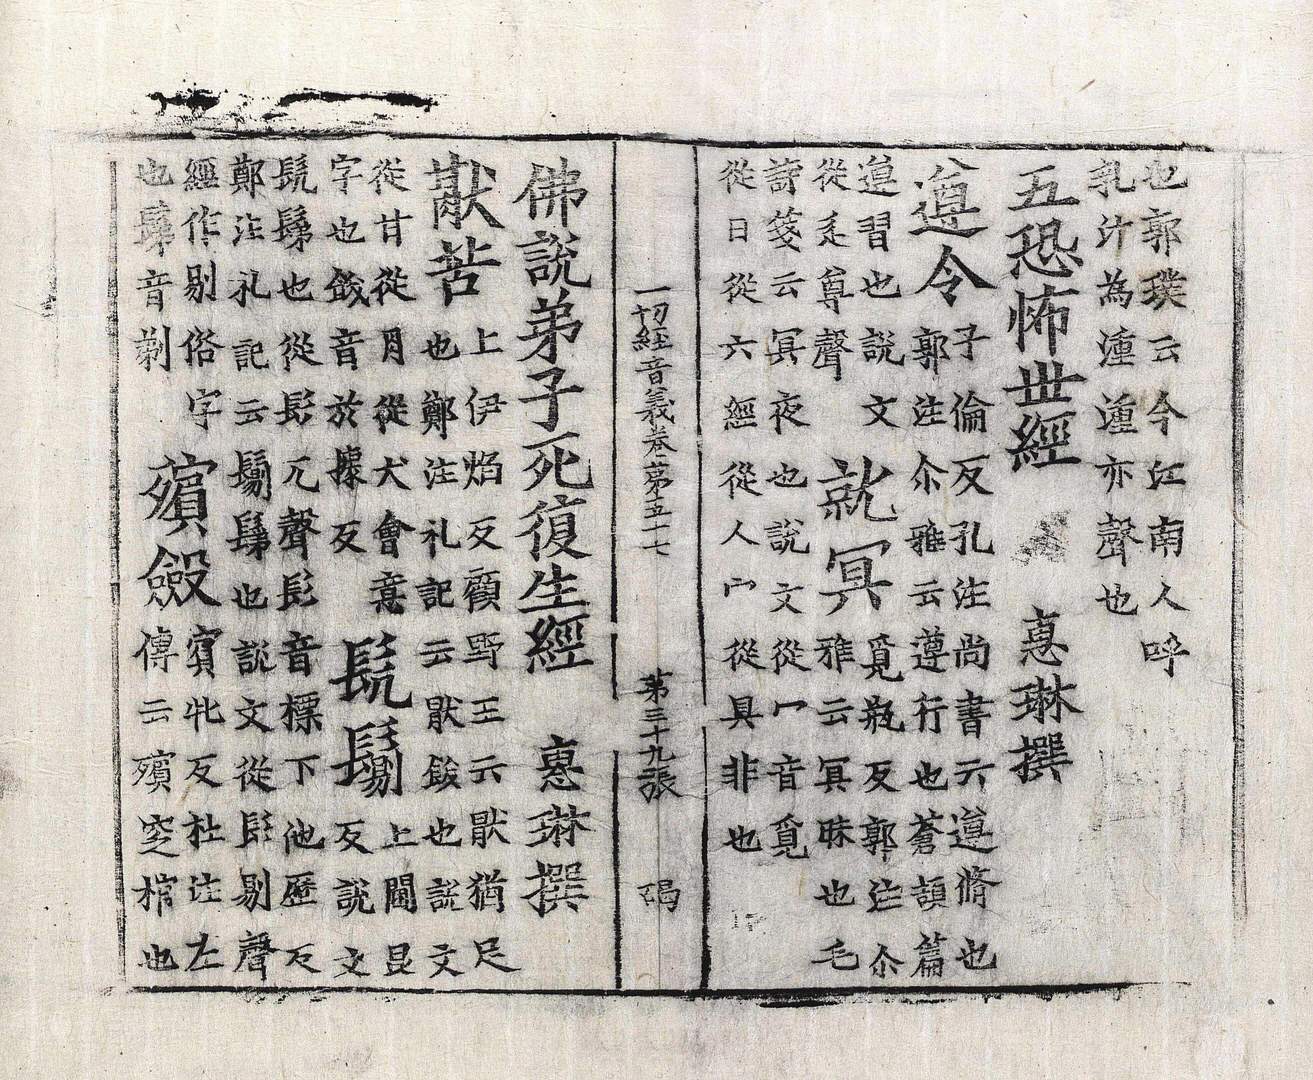 也郭璞云今江南人呼
乳汁為湩湩亦聲也
五恐怖世經 惠琳撰
遵令
子倫反孔注尚書云遵脩也
郭注尒雅云遵行也蒼頡篇
遵習也說文
從辵尊聲
就冥
覓瓶反郭注尒
雅云冥昧也毛
詩箋云冥夜也說文從冖音覓
從日從六經從人宀從具非也
一切經音義卷第五十七 第三十九張 碣
佛說弟子死復生經 惠琳撰
猒苦
上伊焰反顧野王云猒猶足
也鄭注礼記云猒飫也說文
從甘從月從犬會意
字也飫音於據反
髡鬄
上閫昆
反說文
髡鬀也從髟兀聲髟音標下他歷反
鄭注礼記云鬄鬀也說文從髟剔聲
經作剔俗字
也鬀音剃
殯殮
賓牝反杜注左
傳云殯窆棺也